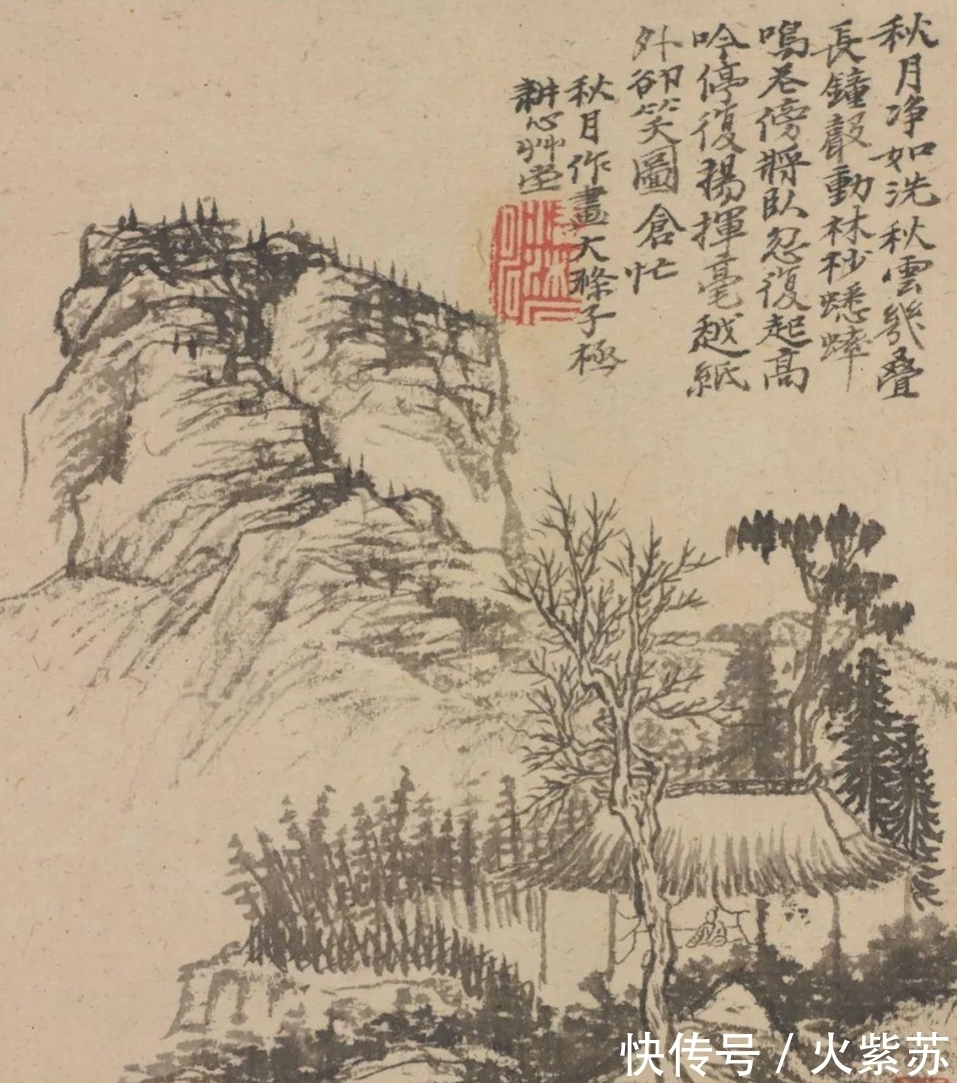 秋月净如洗秋雲幾叠
長鐘聲動林杪蟋蟀
鳴巷傍將臥忽復起高
吟停復揚揮毫越紙
外卻笑圖倉忙
秋月作畫大滌子極
耕心艸堂
快传号 / 火紫苏